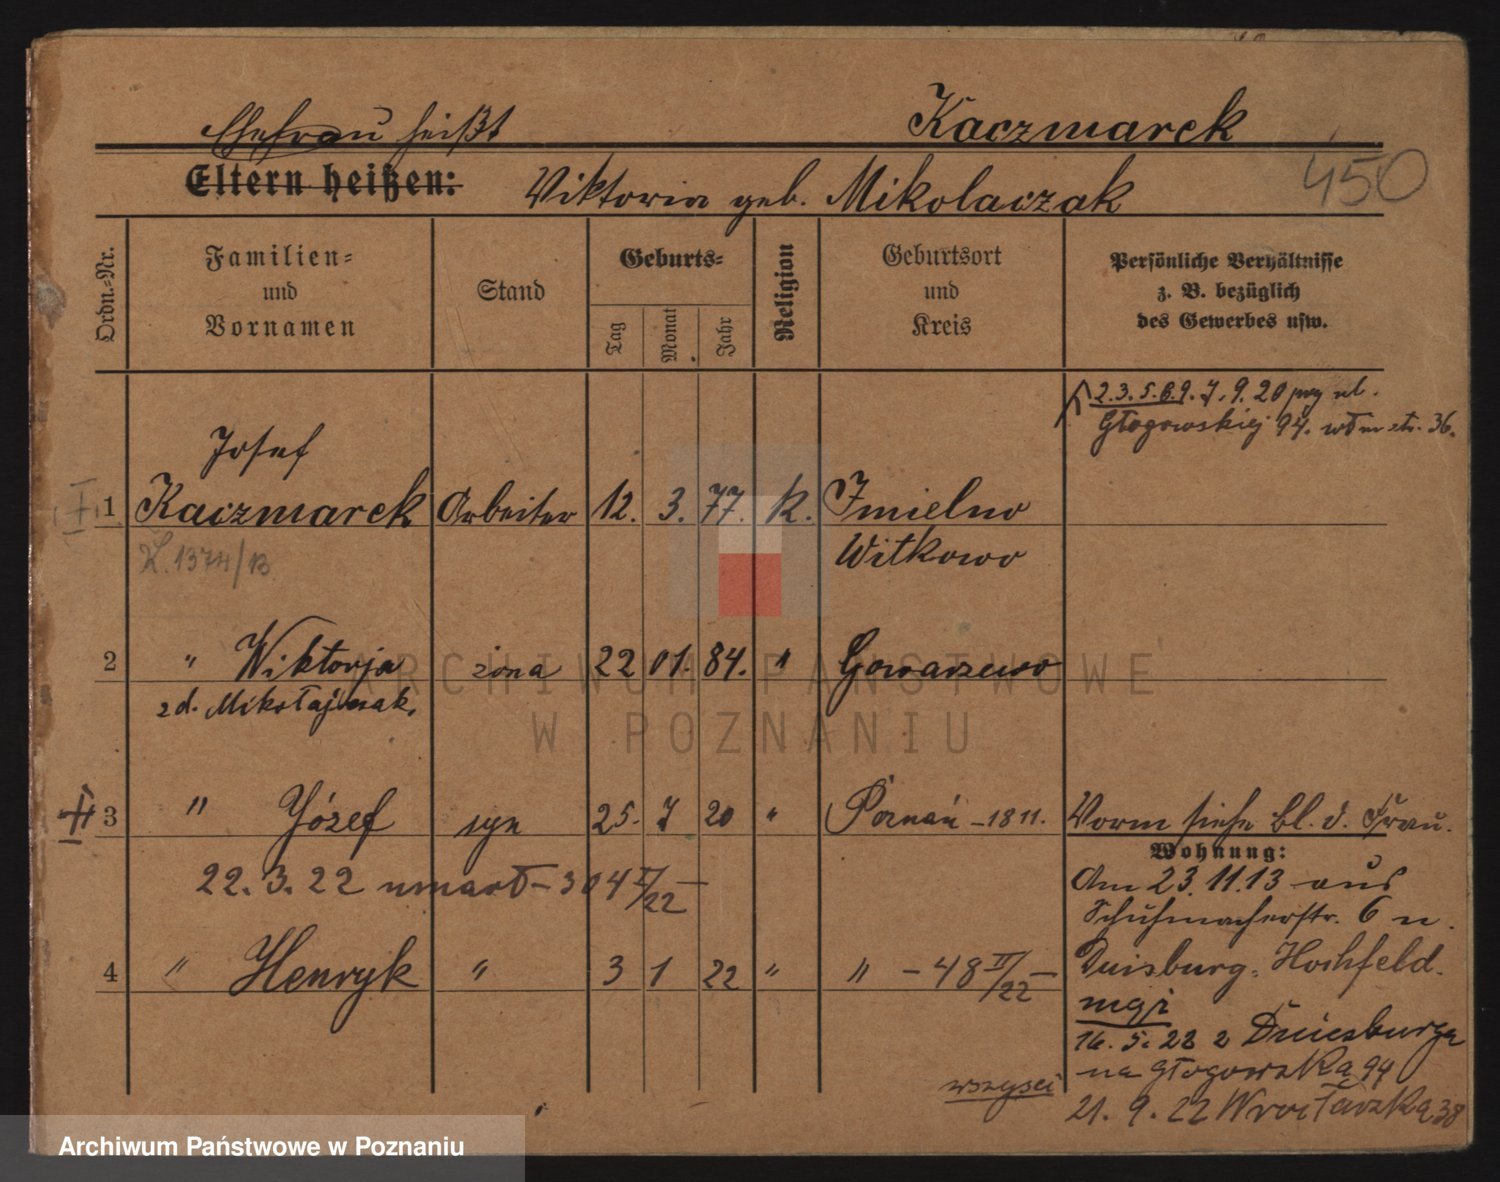 Ehefrau heißt
Kaczmarek
Eltern heißen:
Viktoria geb. Mikolaczak
450
Ordn.-Nr.
Familien-
und
Vornamen
Stand
Geburts-
Tag
Monat
Jahr
Religion
Geburtsort
und
Kreis
Persönliche Verhältnisse
z. B. bezüglich
des Gewerbes usw.
2.3.5.6.9.7.9.20 przy ul.
Głogowskiej 94. str. 36.
Josef
I. 1 Kaczmarek Arbeiter 12. 3. 77. K. Imielno
Witkowo
1374/B
2 " Wiktorja żona 22 01. 84. " Gowarzewo
zd. Mikołajczak.
II 3 " Józef syn 25. 7 20 " Poznań - 1811. Vorm siehe Bl. d. Frau.
Wohnung:
22.3.22 umarł - 304 II/22 -
Am 23.11.13 aus
Schuhmacherstr. 6 n.
4 " Henryk " 3 1 22 " " - 48 II/22 -
Duisburg-Hochfeld.
mąż
16. 5. 22 z Duiesburga
na Głogowska 94
wszyscy
21. 9. 22 Wrocławska 38
ARCHIWUM PAŃSTWOWE
W POZNANIU
Archiwum Państwowe w Poznaniu